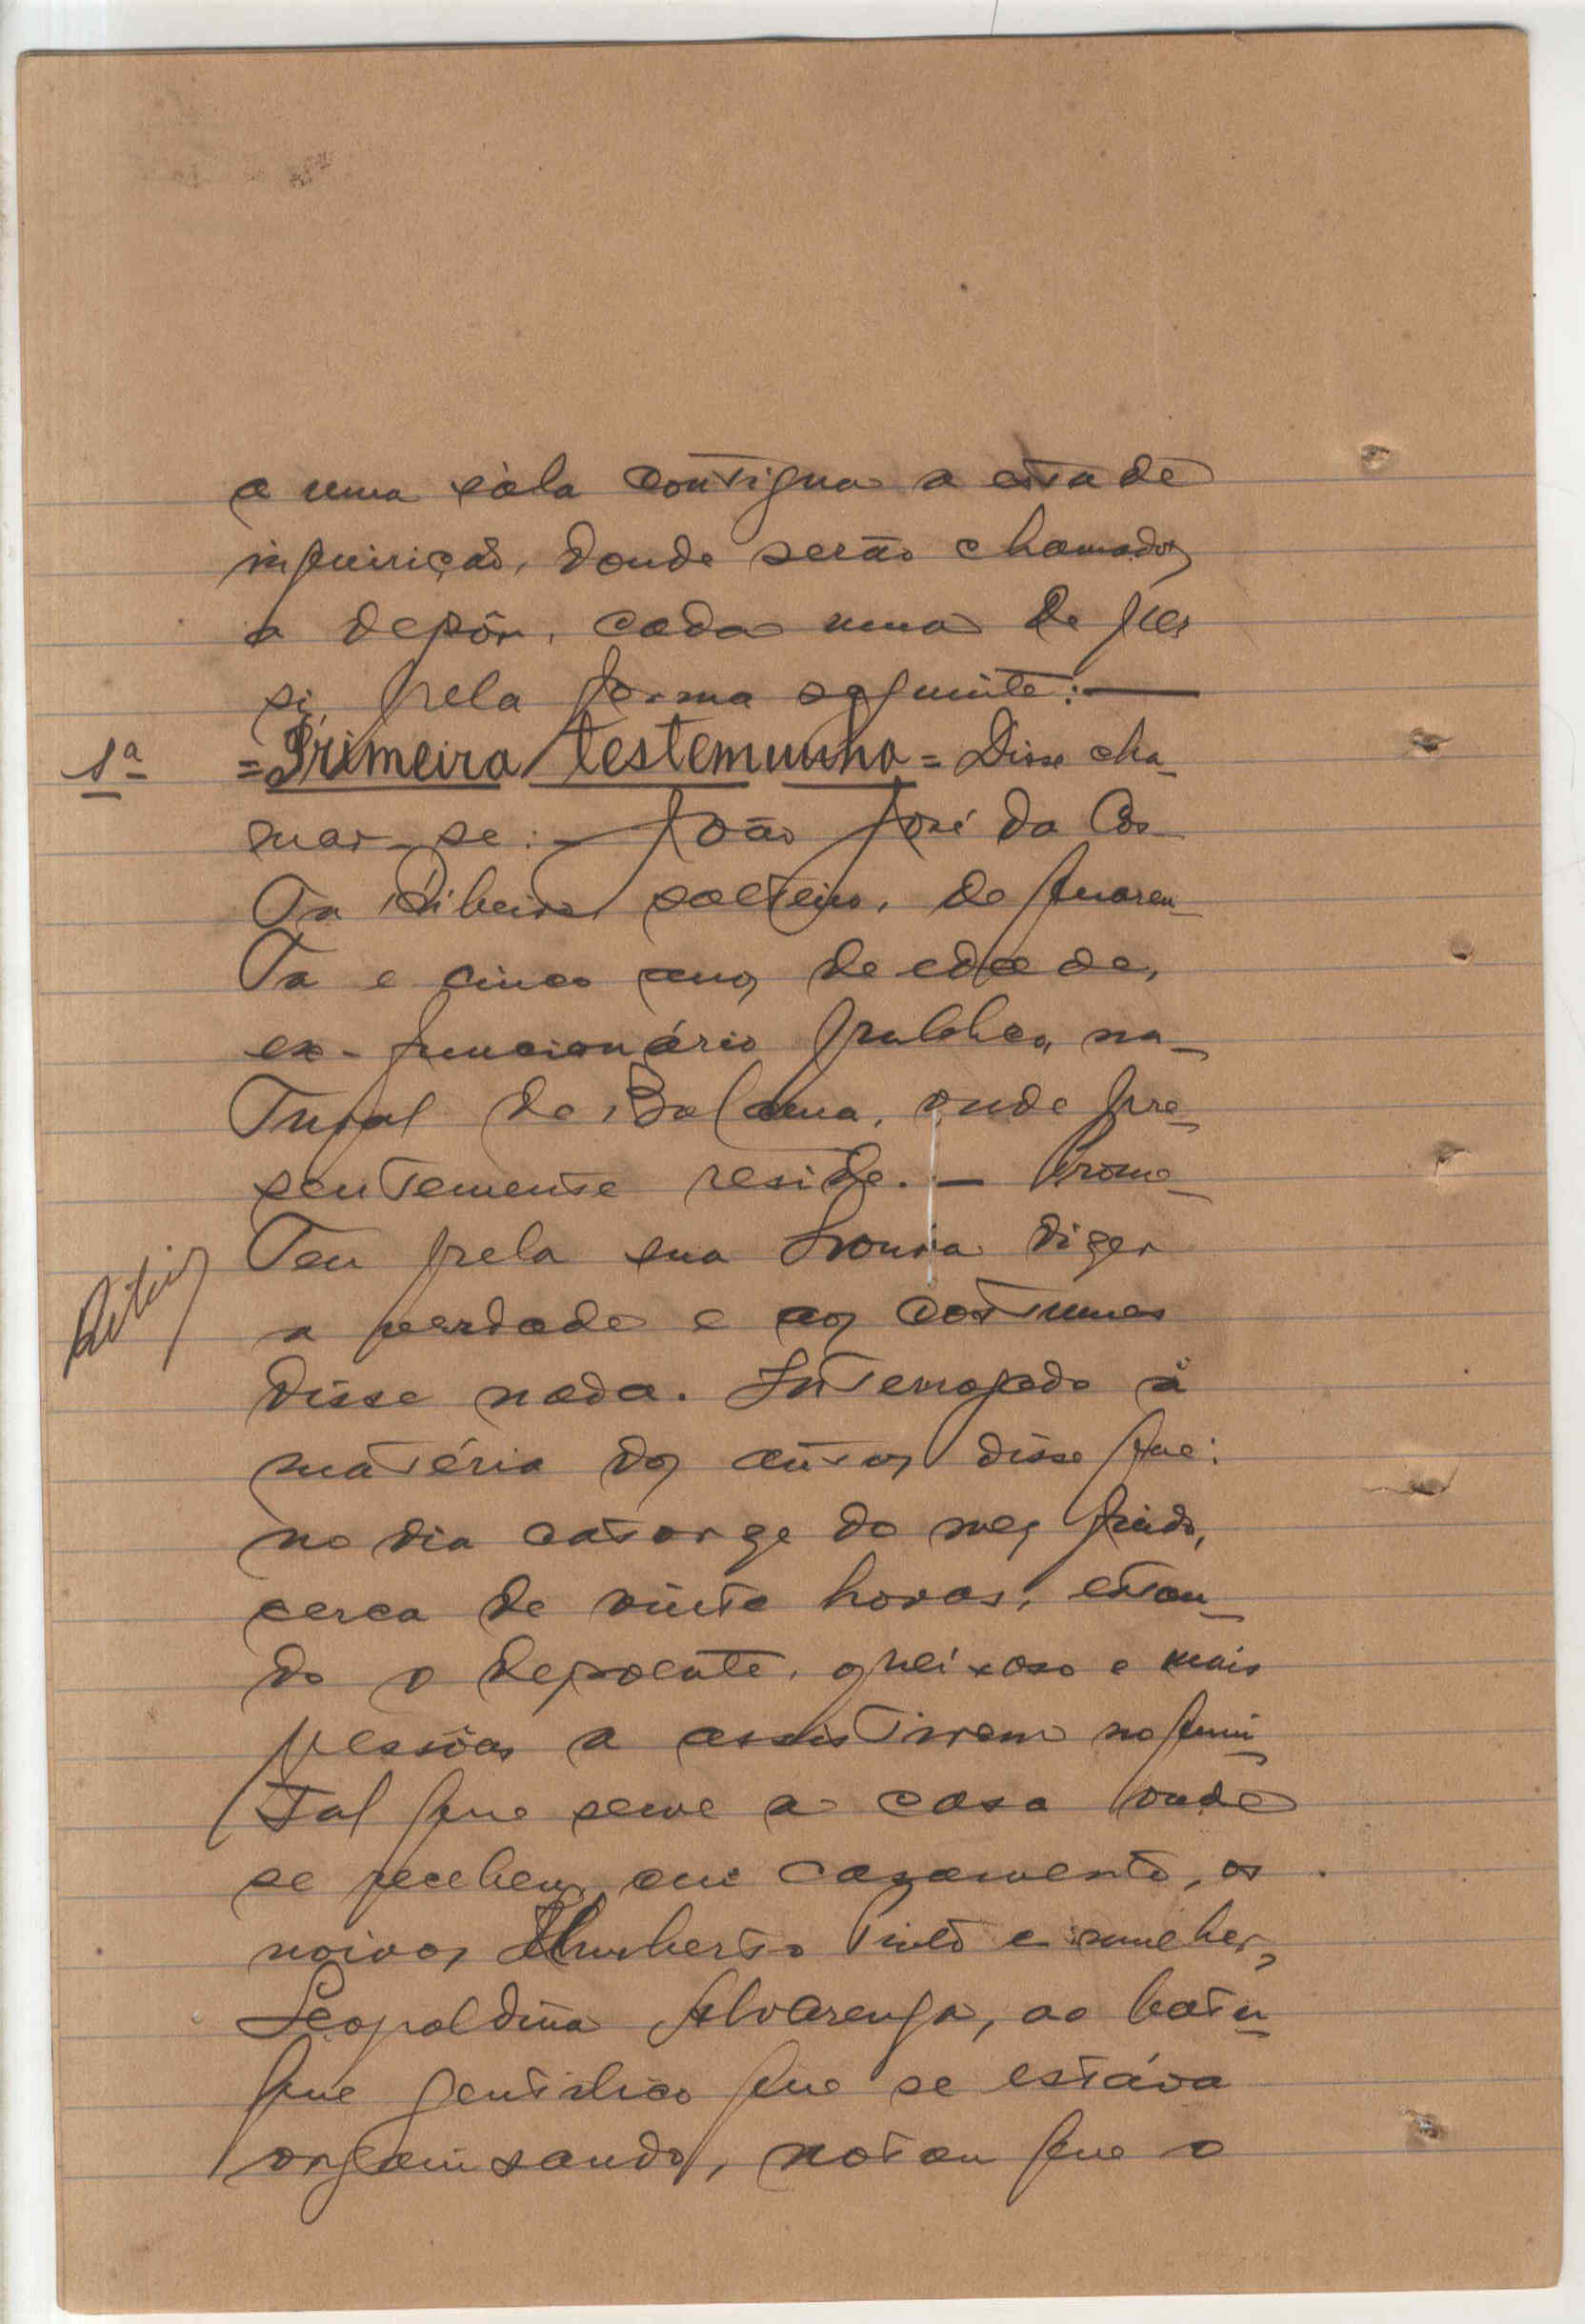 a uma sàla contigua a esta de
inquirição, donde serão chamados
a depôr, cada uma de per
si, pela forma seguinte:—
1ª =Primeira testemunha= Disse cha-
mar-se:- João José da Cos-
ta Ribeiro, solteiro, de quaren-
ta e cinco anos de edade,
ex-funcionário publico, na-
tural de Bolama, onde pre-
sentemente reside. — Prome-
teu pela sua honra dizer
a verdade e aos costumes
disse nada. Interrogado à
matéria dos autos disse que:
no dia catorze do mez findo,
cerca de vinte horas, estan-
do o depoente, queixoso e mais
pessôas a assistirem no quin-
tal que serve a casa onde
se recebem em casamento, os
noivos Humberto Pinto e mulher,
Leopoldina Alvarenga, ao batu-
que gentilico que se estáva
organisando, notou que o